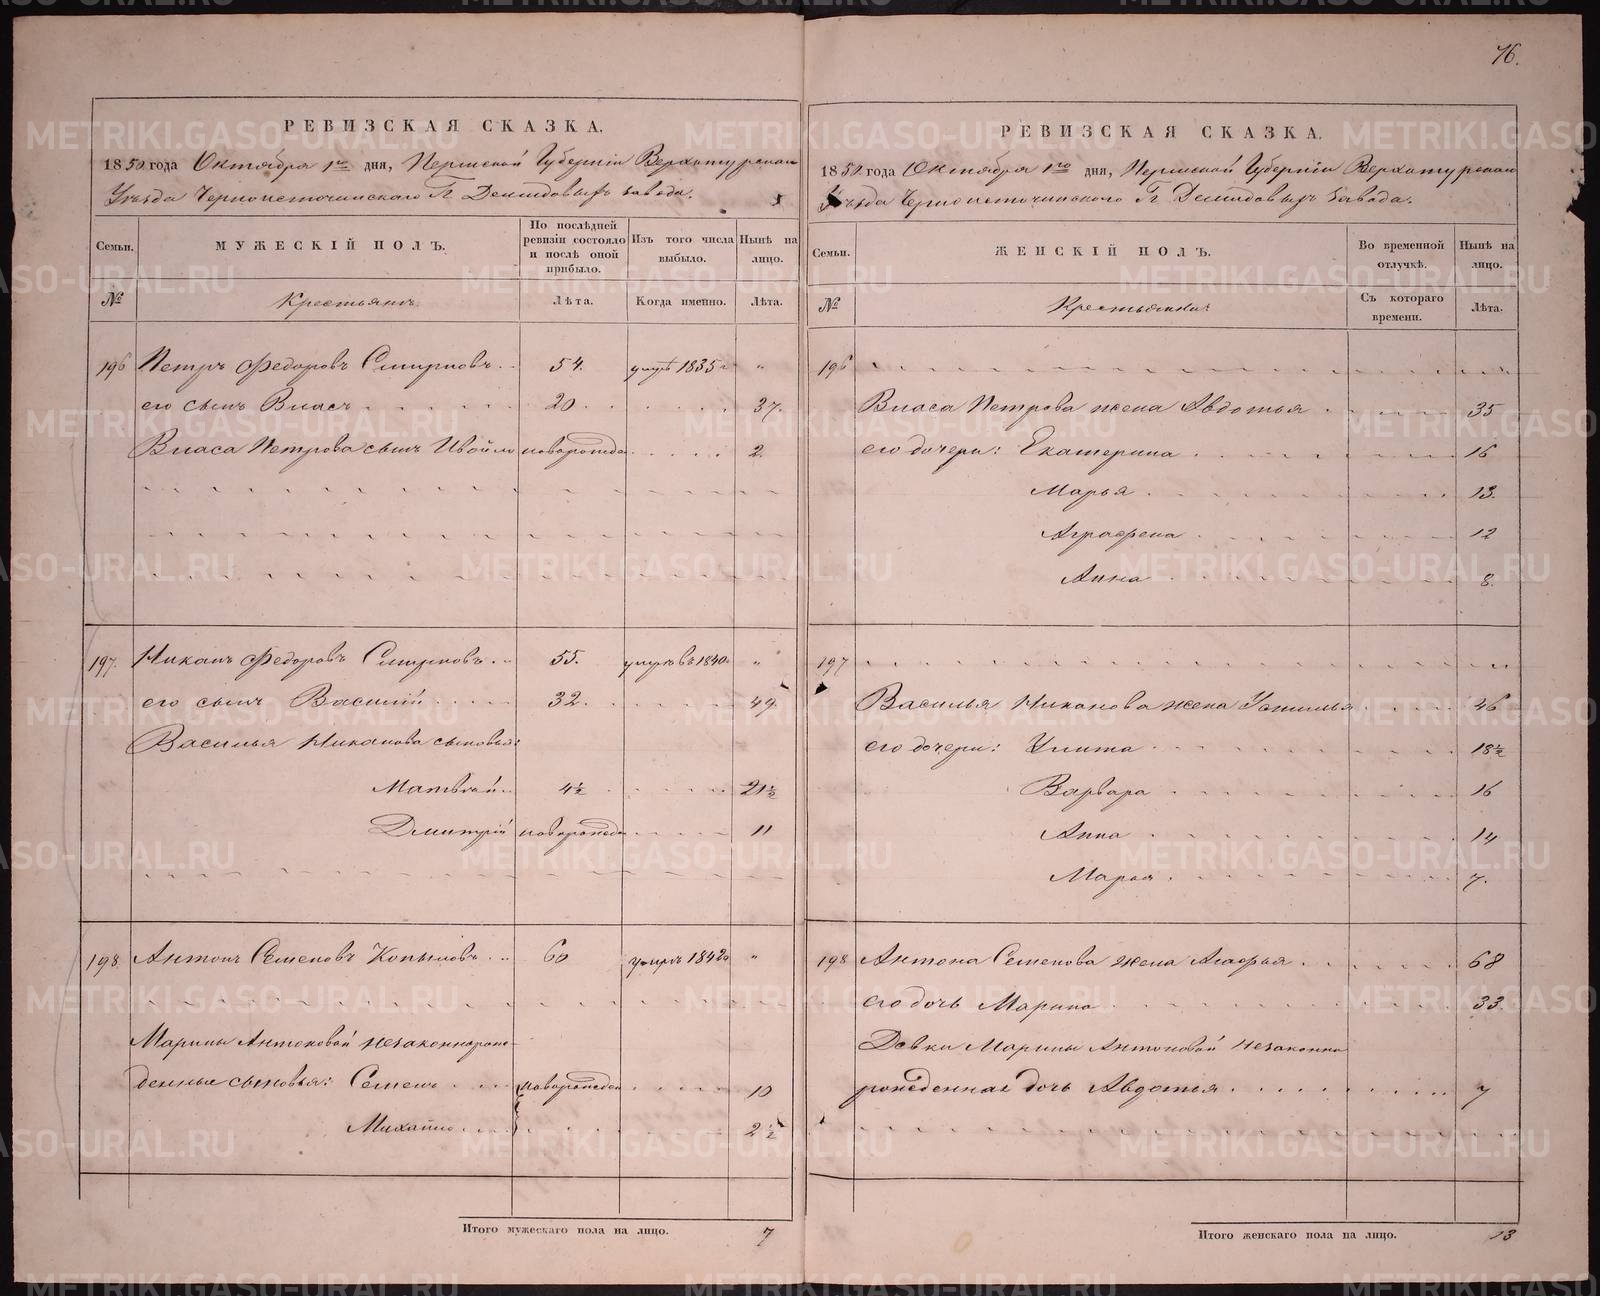 76.
РЕВИЗСКАЯ СКАЗКА.
1850 года Октября 1го дня, Пермской Губерніи Верхотурскаго
Уѣзда Черноисточинскаго Гг Демидовыхъ завода.
Семьи.
МУЖЕСКІЙ ПОЛЪ.
По послѣдней ревизіи состояло и послѣ оной прибыло.
Изъ того числа выбыло.
Нынѣ на лицо.
№
Крестьянъ
Лѣта.
Когда именно.
Лѣта.
196 Петръ Федоровъ Смирновъ 54. умръ 1835 "
его сынъ Власъ 20 37.
Власа Петрова сынъ новорожде 2.
197. Никонъ Федоровъ Смирновъ 55. умръ въ 1840 "
его сынъ Василій 32. 49
Василья Никонова сыновья:
Матвѣй 4½ 21½
Дмитрій новорожде 11
198. Антонъ Семеновъ Копыловъ 60 умръ 1842 "
Марины Антоновой незаконнорож-
денные сыновья: Семенъ новорожден 10
Михайло 2½
Итого мужескаго пола на лицо. 7
РЕВИЗСКАЯ СКАЗКА.
1850 года Октября 1го дня, Пермской Губерніи Верхотурскаго
Уѣзда Черноисточинскаго Гг Демидовыхъ завода.
Семьи.
ЖЕНСКІЙ ПОЛЪ.
Во временной отлучкѣ.
Нынѣ на лицо.
№
Съ котораго времени.
Лѣта.
196
Власа Петрова жена Авдотья 35
его дочери: Екатерина 16
Марья 13.
Аграфена 12
Анна 8.
197
Василья Никонова жена Устинья 46
его дочери: Улита 18½
Варвара 16
Анна 14
Марья 7.
198 Антона Семенова жена Агафья 68
его дочь Марина 33.
Девки Марины Антоновой незаконно
рожденная дочь Авдотья 7
Итого женскаго пола на лицо. 13
METRIKI.GASO-URAL.RU